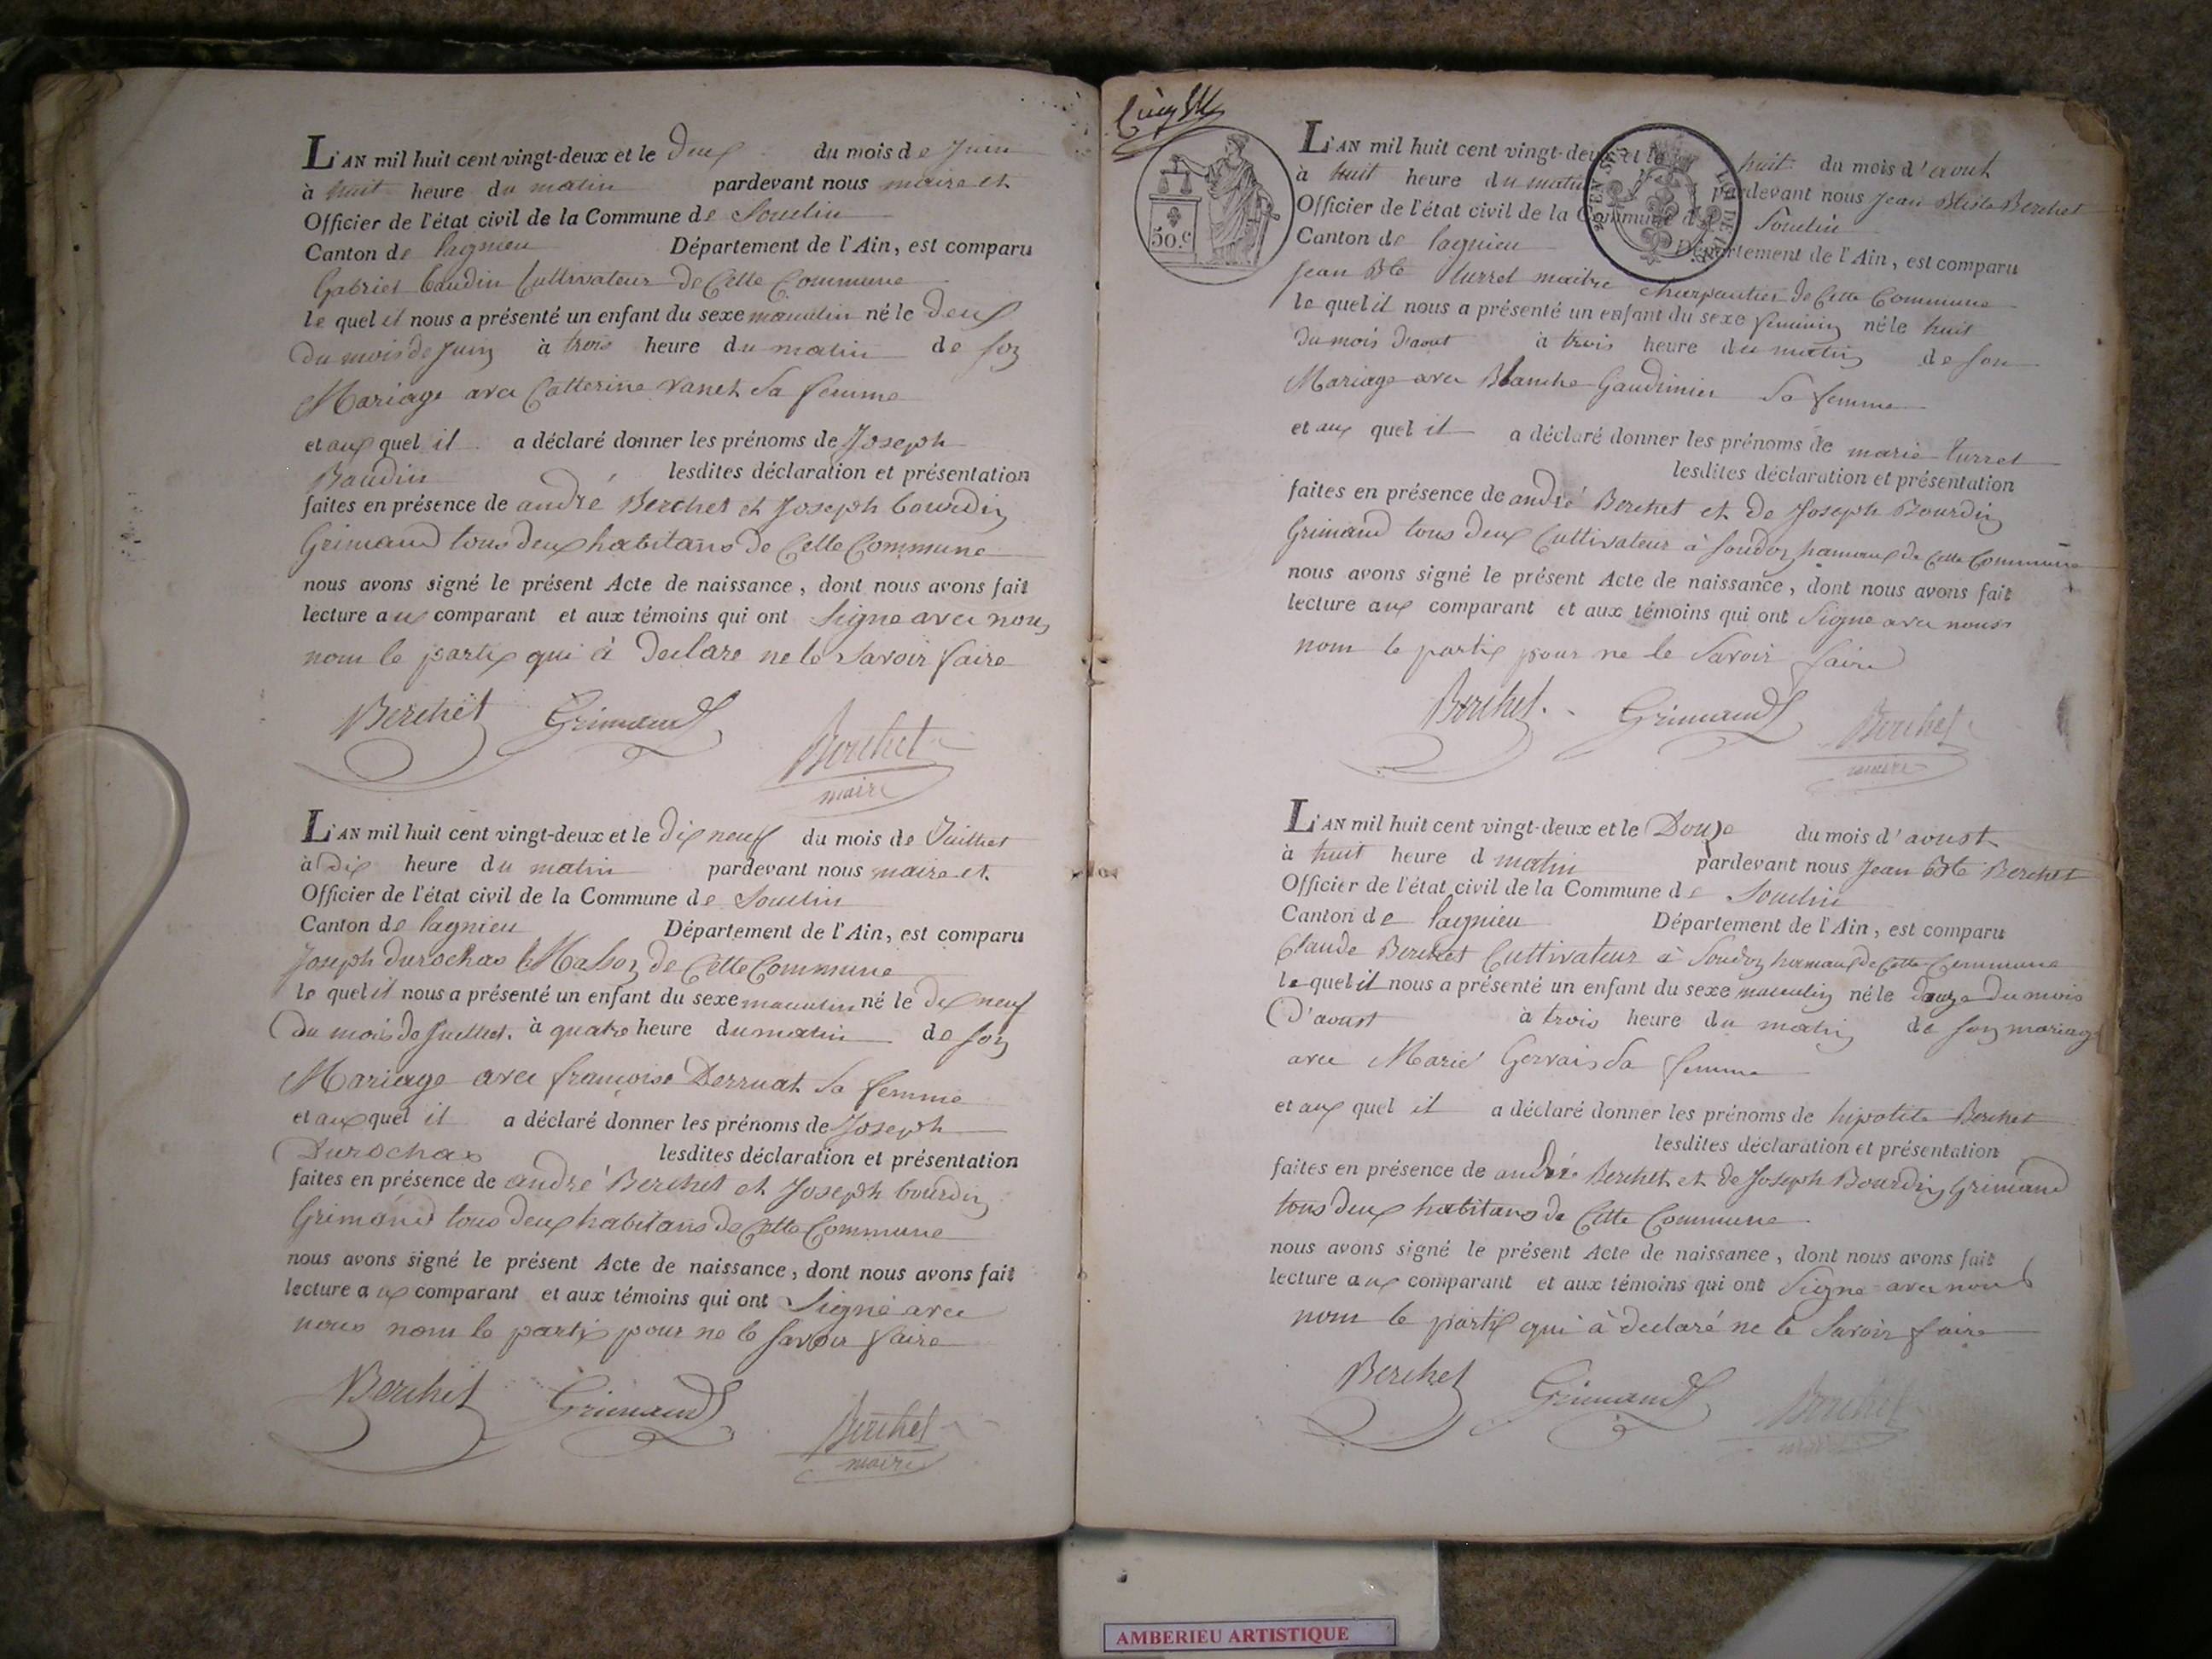 L'AN mil huit cent vingt-deux et le deux du mois de Juin
à huit heure du matin pardevant nous maire et
Officier de l'état civil de la Commune de Souclin
Canton de lagnieu Département de l'Ain, est comparu
Gabriel baudin Cultivateur de Cette Commune
le quel il nous a présenté un enfant du sexe masculin né le deux
du mois de Juin à trois heure du matin de son
Mariage avec Catterine vanet sa femme
et aux quel il a déclaré donner les prénoms de Joseph
Baudin lesdites déclaration et présentation
faites en présence de andré Berchet et Joseph bourdin
Grimand tous deux habitans de Cette Commune
nous avons signé le présent Acte de naissance, dont nous avons fait
lecture aux comparant et aux témoins qui ont Signe avec nous
nom le partix qui à declare ne le Savoir faire
Berchet Grimand
Berchet
maire
L'AN mil huit cent vingt-deux et le dix neuf du mois de Juillet
à dix heure du matin pardevant nous maire et
Officier de l'état civil de la Commune de Souclin
Canton de lagnieu Département de l'Ain, est comparu
Joseph durochas de Cette Commune
le quel il nous a présenté un enfant du sexe masculin né le dix neuf
du mois de Juillet. à quatre heure du matin de son
Mariage avec françoise Derruat sa femme
et aux quel il a déclaré donner les prénoms de Joseph
Durochas lesdites déclaration et présentation
faites en présence de andré Berchet et Joseph bourdin
Grimand tous deux habitans de Cette Commune
nous avons signé le présent Acte de naissance, dont nous avons fait
lecture aux comparant et aux témoins qui ont Signé avec
nous nom le partix pour ne le Savoir faire
Berchet Grimand
Berchet
maire
50.c
L'AN mil huit cent vingt-deux et le huit du mois d'aout
à huit heure du matin pardevant nous Jean Btiste Berchet
Officier de l'état civil de la Commune de Souclin
Canton de lagnieu Département de l'Ain, est comparu
Jean Bte turrel maitre charpantier de Cette Commune
le quel il nous a présenté un enfant du sexe feminin né le huit
du mois d'aout à trois heure du matin de son
Mariage avec Blanche Gaudimier Sa femme
et aux quel il a déclaré donner les prénoms de marie turrel
lesdites déclaration et présentation
faites en présence de andré Berchet et de Joseph Bourdin
Grimand tous deux Cultivateur à Soudon hamaux de Cette Commune
nous avons signé le présent Acte de naissance, dont nous avons fait
lecture aux comparant et aux témoins qui ont Signe avec nous
nom le partix pour ne le Savoir faire
Berchet. Grimand
Berchet
maire
L'AN mil huit cent vingt-deux et le Douze du mois d'aoust
à huit heure d matin pardevant nous Jean Bte Berchet
Officier de l'état civil de la Commune de Souclin
Canton de lagnieu Département de l'Ain, est comparu
Claude Berchet Cultivateur à Soudon hamaux de Cette Commune
le quel il nous a présenté un enfant du sexe masculin né le douze du mois
D'aoust à trois heure du matin de son mariage
avec Marie Gervais Sa femme
et aux quel il a déclaré donner les prénoms de hipolite Berchet
lesdites déclaration et présentation
faites en présence de andré Berchet et de Joseph Bourdin Grimand
tous deux habitans de Cette Commune
nous avons signé le présent Acte de naissance, dont nous avons fait
lecture aux comparant et aux témoins qui ont Signe avec nous
nom le partix qui à declaré ne le Savoir faire
Berchet Grimand
Berchet
maire
AMBERIEU ARTISTIQUE